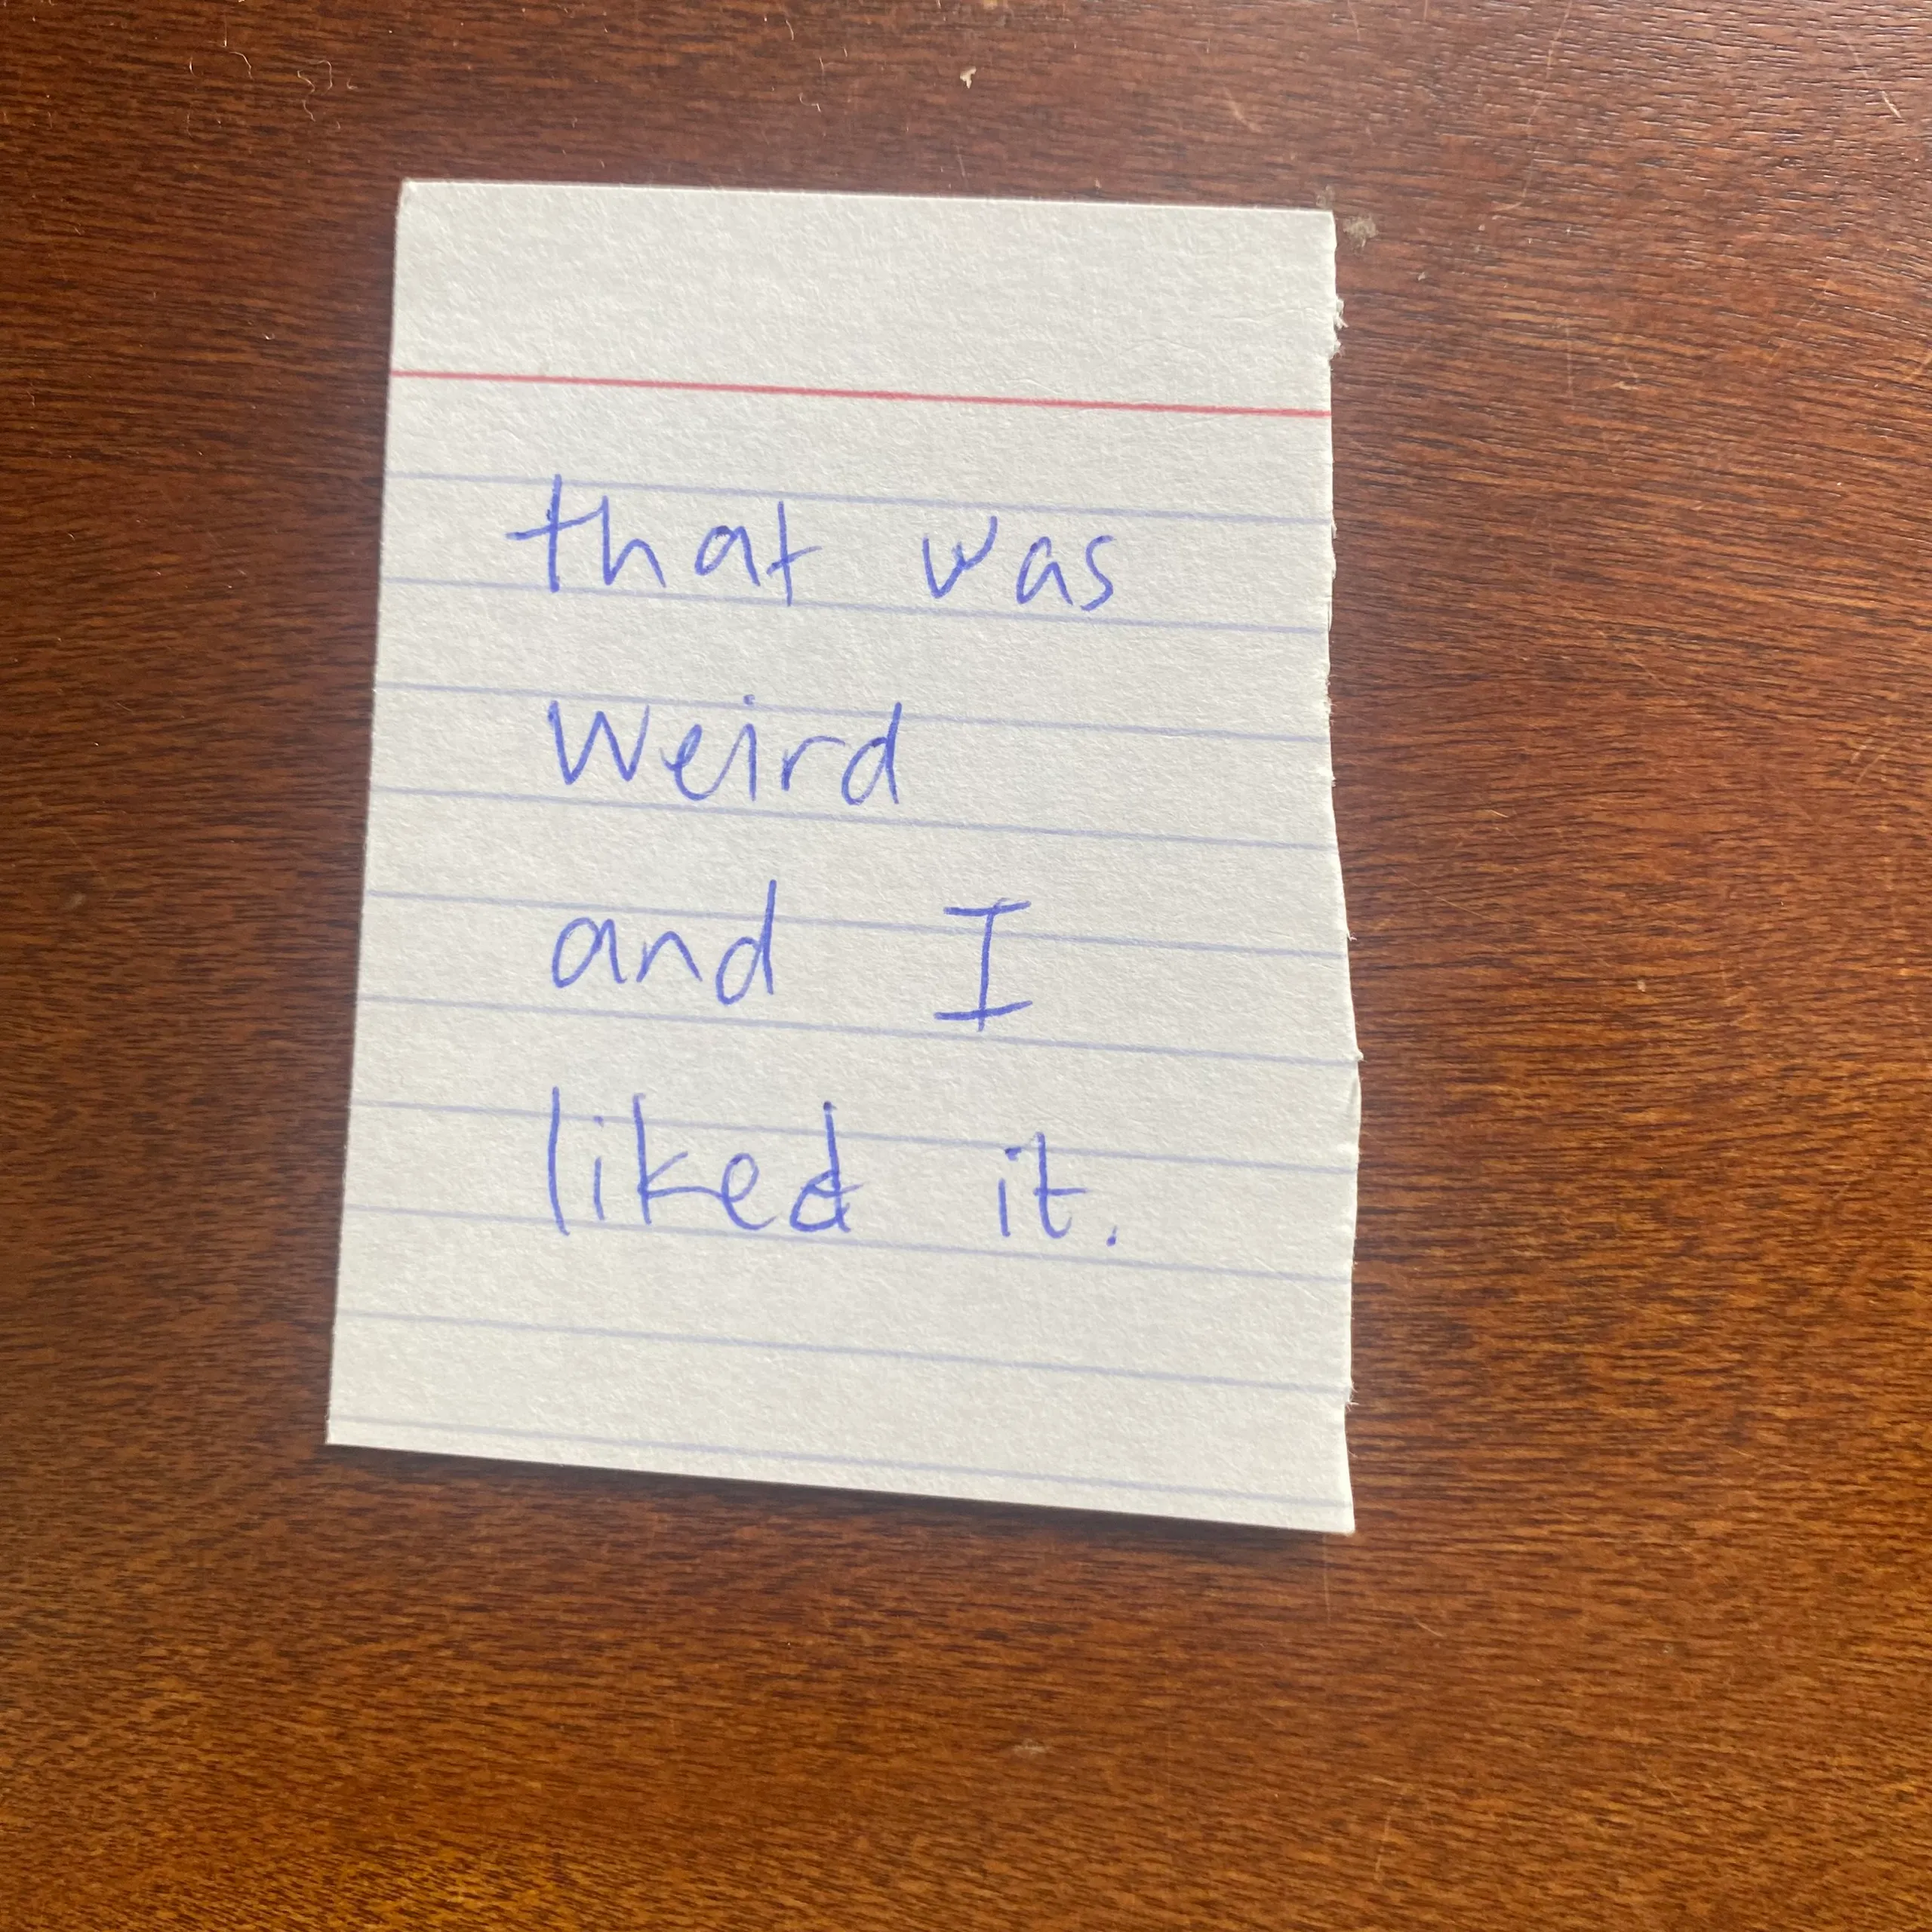 that was
weird
and I
liked it.